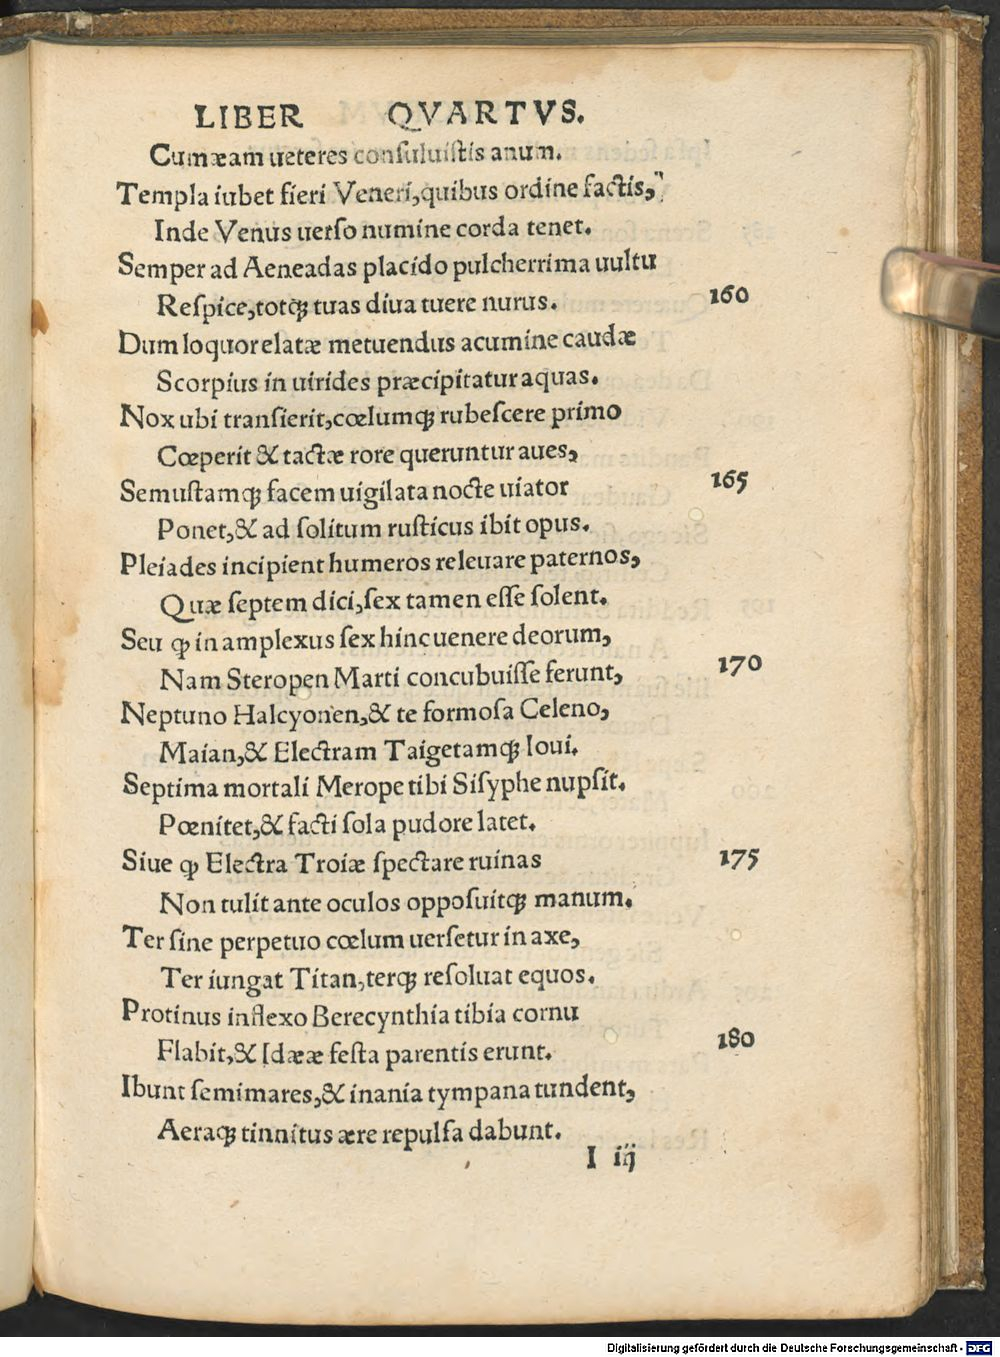 LIBER QVARTVS.
Cumæam ueteres conſuluiſtis anum.
Templa iubet fieri Veneri, quibus ordine factis,
Inde Venus uerſo numine corda tenet.
Semper ad Aeneadas placido pulcherrima uultu
Reſpice, totq́; tuas diua tuere nurus. 160
Dum loquor elatæ metuendus acumine caudæ
Scorpius in uirides præcipitatur aquas.
Nox ubi tranſierit, cœlumq́; rubeſcere primo
Cœperit & tactæ rore queruntur aues,
Semuſtamq́; facem uigilata nocte uiator 165
Ponet, & ad ſolitum ruſticus ibit opus.
Pleiades incipient humeros releuare paternos,
Quæ ſeptem dici, ſex tamen eſſe ſolent.
Seu ꝙ in amplexus ſex hinc uenere deorum,
Nam Steropen Marti concubuiſſe ferunt, 170
Neptuno Halcyonen, & te formoſa Celeno,
Maian, & Electram Taigetamq́; Ioui.
Septima mortali Merope tibi Siſyphe nupſit.
Pœnitet, & facti ſola pudore latet.
Siue ꝙ Electra Troiæ ſpectare ruinas 175
Non tulit ante oculos oppoſuitq́; manum.
Ter ſine perpetuo cœlum uerſetur in axe,
Ter iungat Titan, terq́; reſoluat equos.
Protinus inflexo Berecynthia tibia cornu
Flabit, & Idææ feſta parentis erunt. 180
Ibunt ſemimares, & inania tympana tundent,
Aeraq́; tinnitus ære repulſa dabunt.
I iij
Digitalisierung gefördert durch die Deutsche Forschungsgemeinschaft - DFG